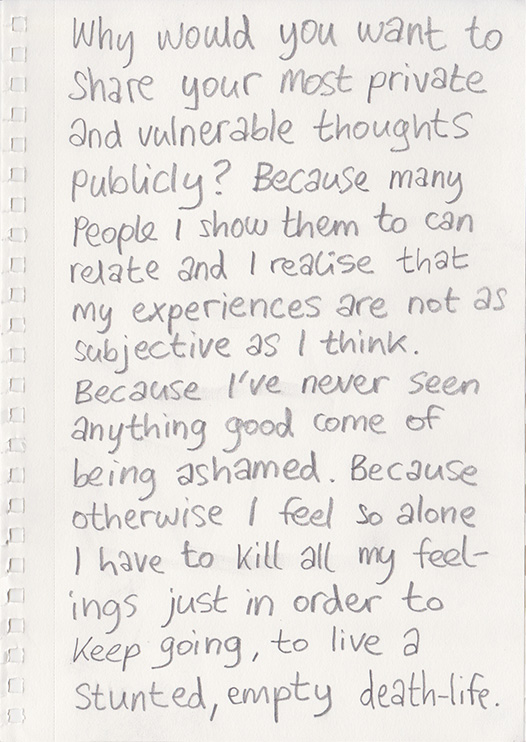 Why would you want to
share your most private
and vulnerable thoughts
publicly? Because many
people I show them to can
relate and I realise that
my experiences are not as
subjective as I think.
Because I've never seen
anything good come of
being ashamed. Because
otherwise I feel so alone
I have to kill all my feel-
ings just in order to
keep going, to live a
stunted, empty death-life.